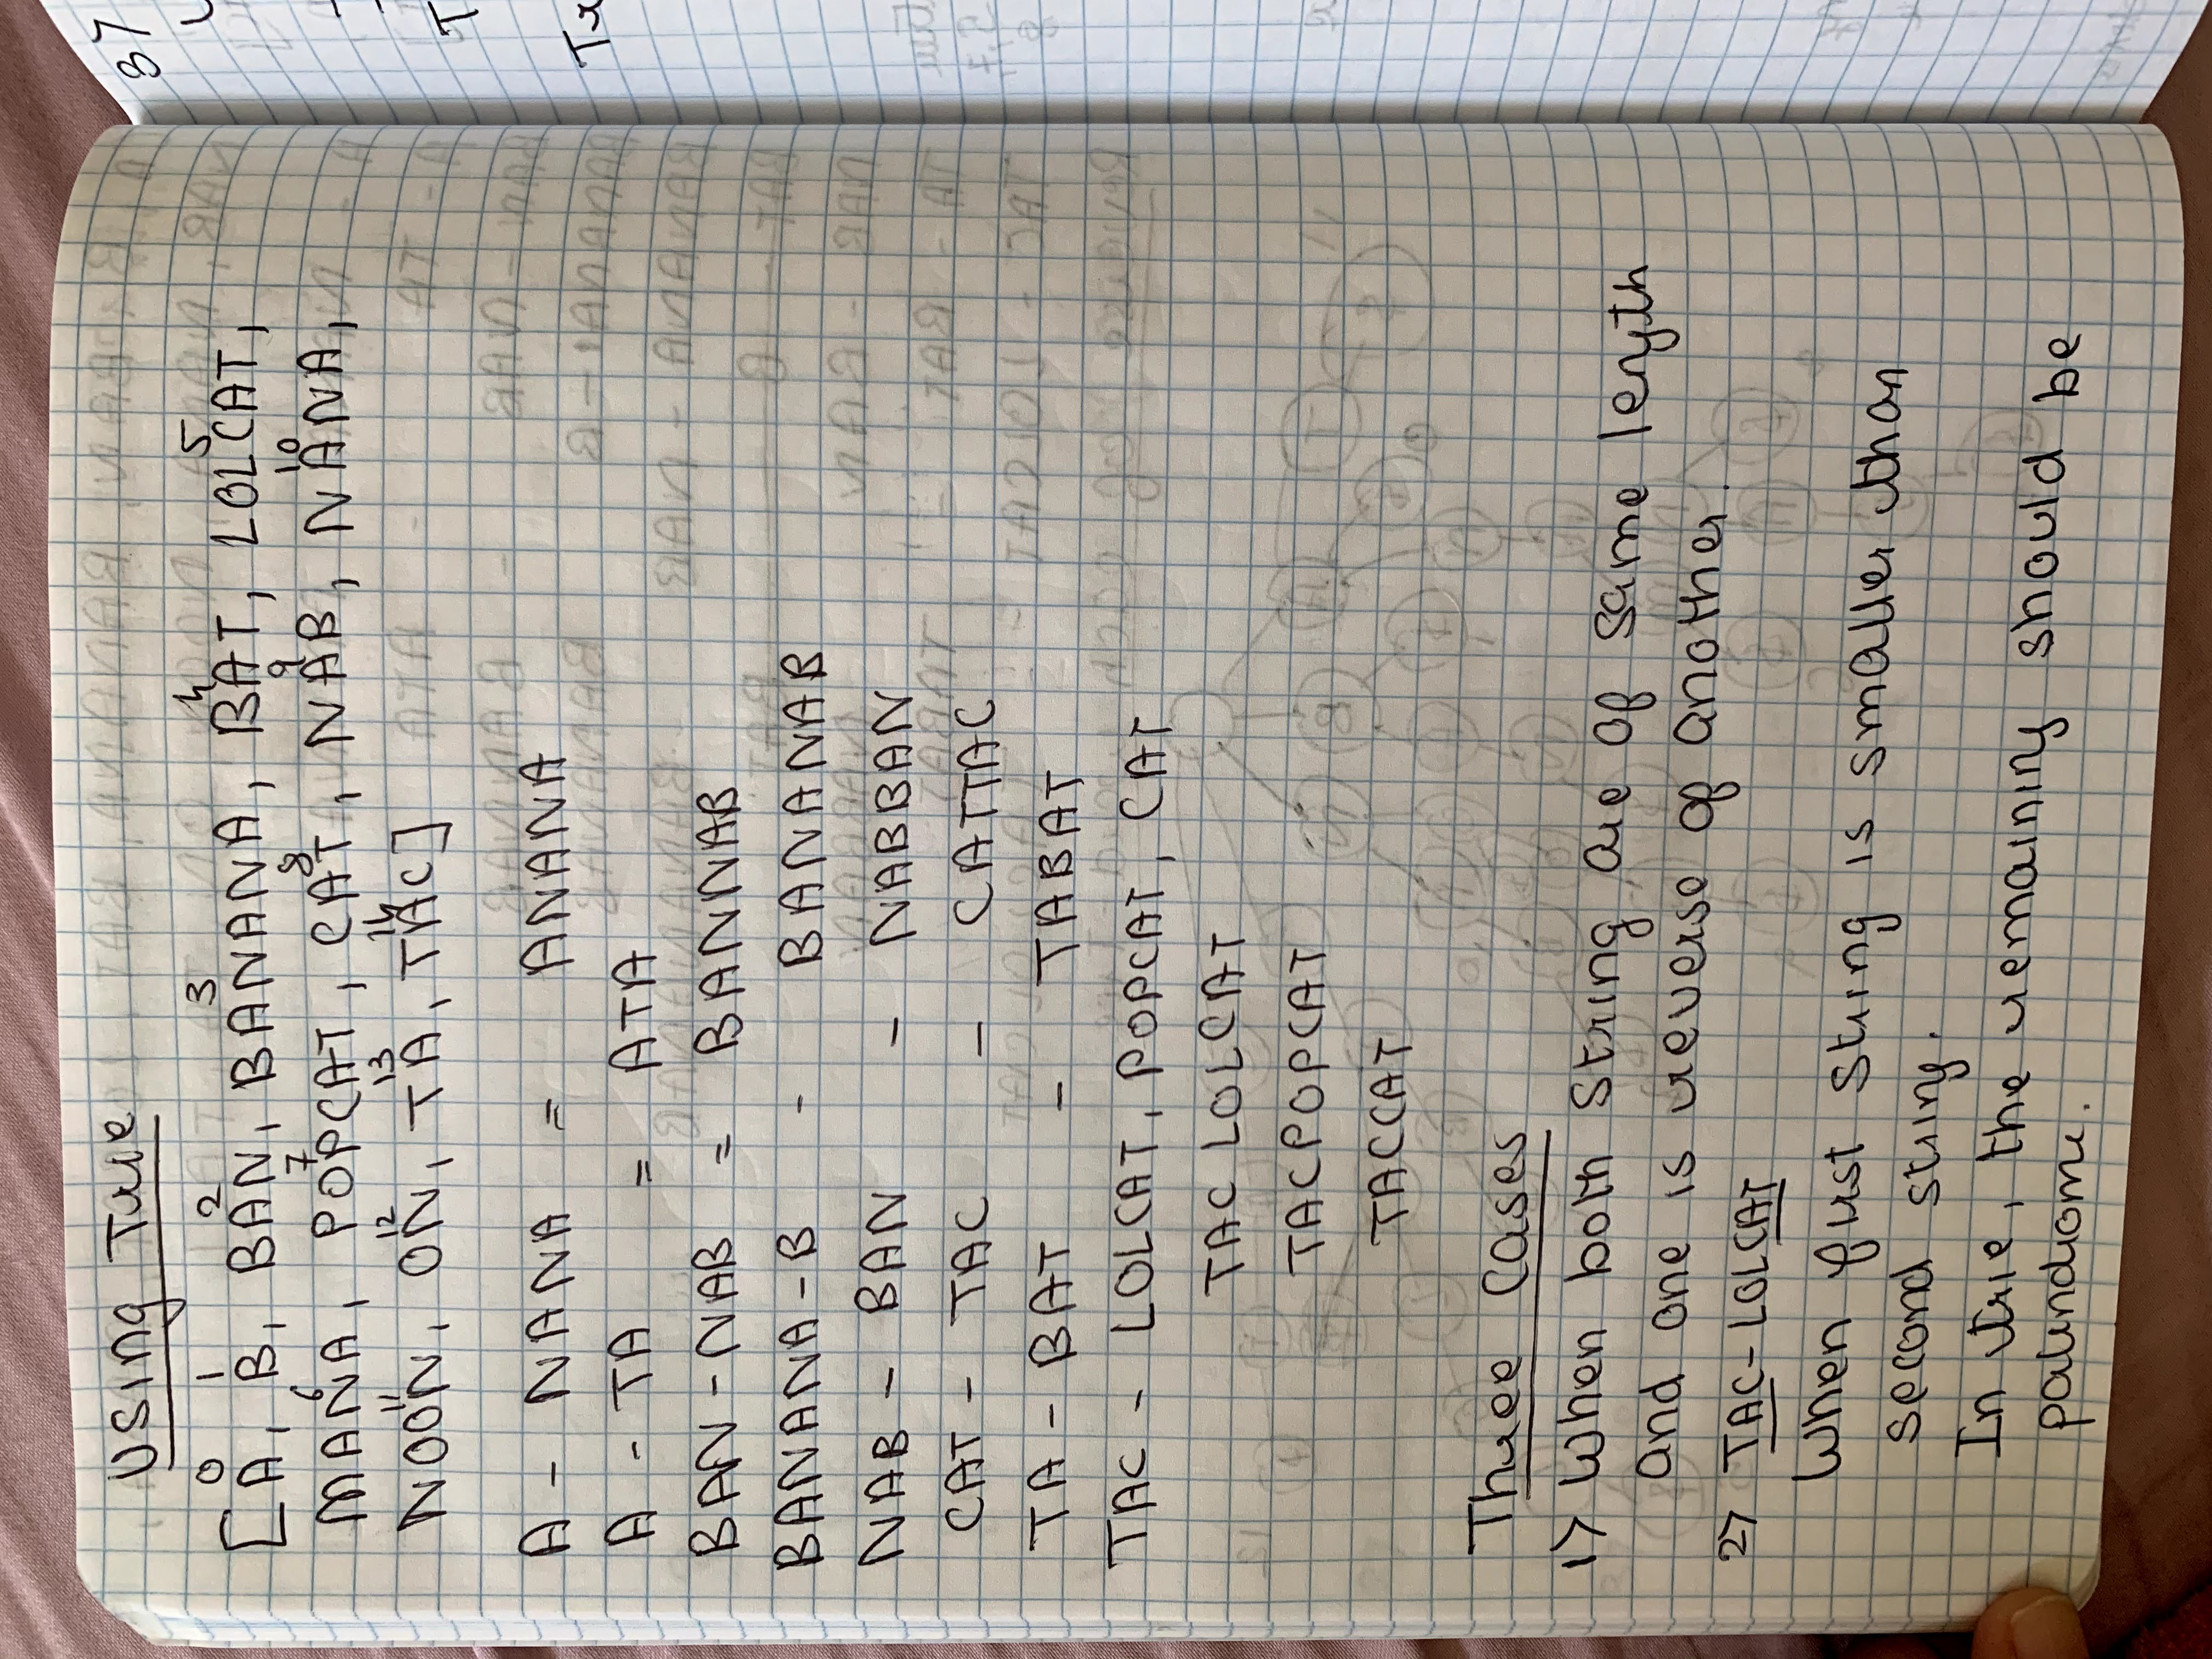 Using Trie
0 1 2 3 4 5
[A, B, BAN, BANANA, BAT, LOLCAT,
6 7 8 9 10
MANA, POPCAT, CAT, NAB, NANA,
11 12 13 14
NOON, ON, TA, TAC]
A - NANA = ANANA
A - TA = ATA
BAN - NAB = BANNAB
BANANA - B - BANANAB
NAB - BAN - NABBAN
CAT - TAC - CATTAC
TA - BAT - TABAT
TAC - LOLCAT, POPCAT, CAT
TAC LOLCAT
TACPOPCAT
TACCAT
Three Cases
1> When both string are of same length
and one is reverse of another.
2> TAC-LOLCAT
When first string is smaller than
second string.
In trie, the remaining should be
palindrome.
37
T
Tr